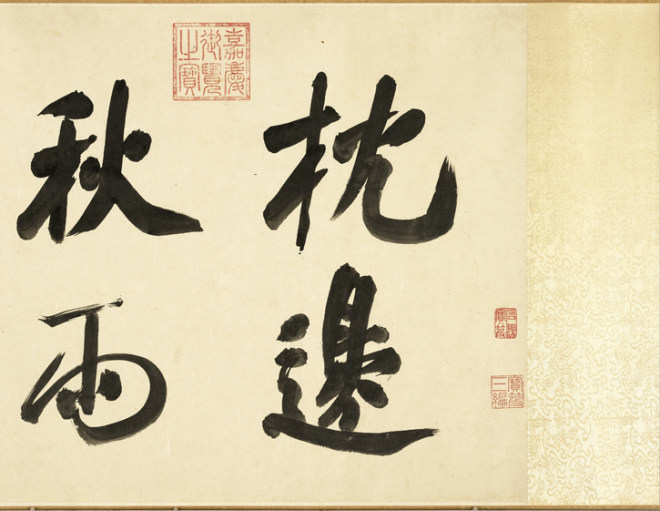 枕邊
秋雨
嘉慶
御覽
之寶
寶笈
三編